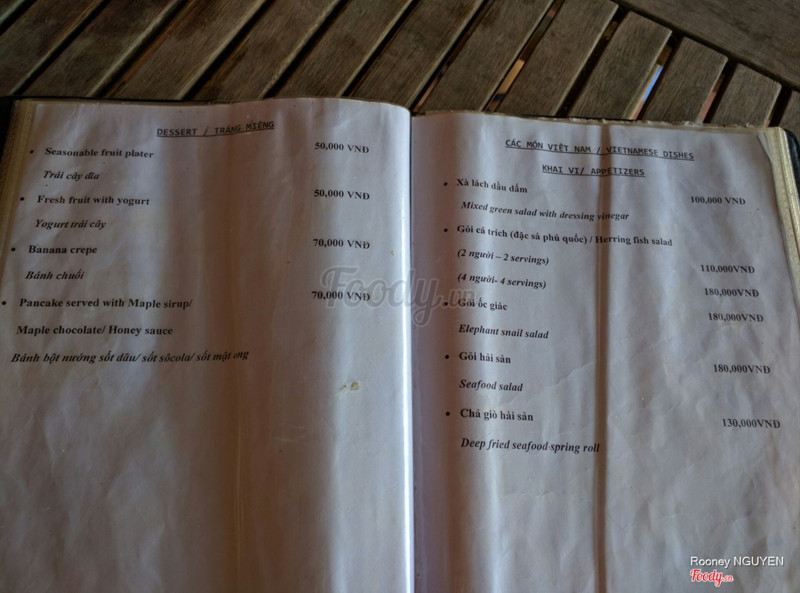 DESSERT / TRÁNG MIỆNG
• Seasonable fruit plater 50,000 VNĐ
Trái cây đĩa
• Fresh fruit with yogurt 50,000 VNĐ
Yogurt trái cây
• Banana crepe 70,000 VNĐ
Bánh chuối
• Pancake served with Maple sirup/ 70,000 VNĐ
Maple chocolate/ Honey sauce
Bánh bột nướng sốt dâu/ sốt sôcola/ sốt mật ong
CÁC MÓN VIỆT NAM / VIETNAMESE DISHES
KHAI VỊ/ APPETIZERS
• Xà lách dầu dấm 100,000 VNĐ
Mixed green salad with dressing vinegar
• Gỏi cá trích (đặc sả phú quốc) / Herring fish salad
(2 người – 2 servings) 110,000VNĐ
(4 người- 4 servings) 180,000VNĐ
• Gỏi ốc giác 180,000VNĐ
Elephant snail salad
• Gỏi hải sản 180,000VNĐ
Seafood salad
• Chả giò hải sản 130,000VNĐ
Deep fried seafood spring roll
Foody.vn
Rooney NGUYEN
Foody.vn